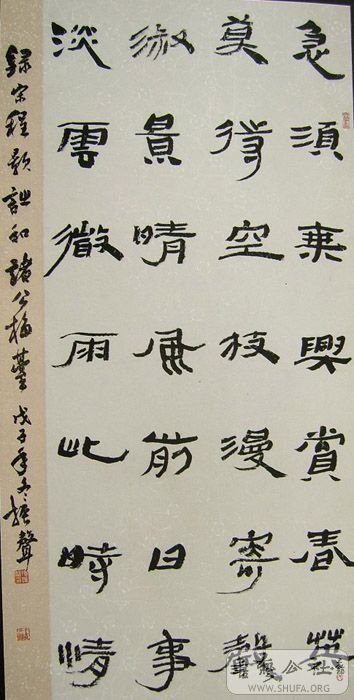 急須乘興賞春英
莫待空枝漫寄聲
淑景晴風前日事
淡雲微雨此時情
錄宋程顥詩和諸公梅臺戊子年冬振聲
書藝公社
WWW.SHUFA.ORG